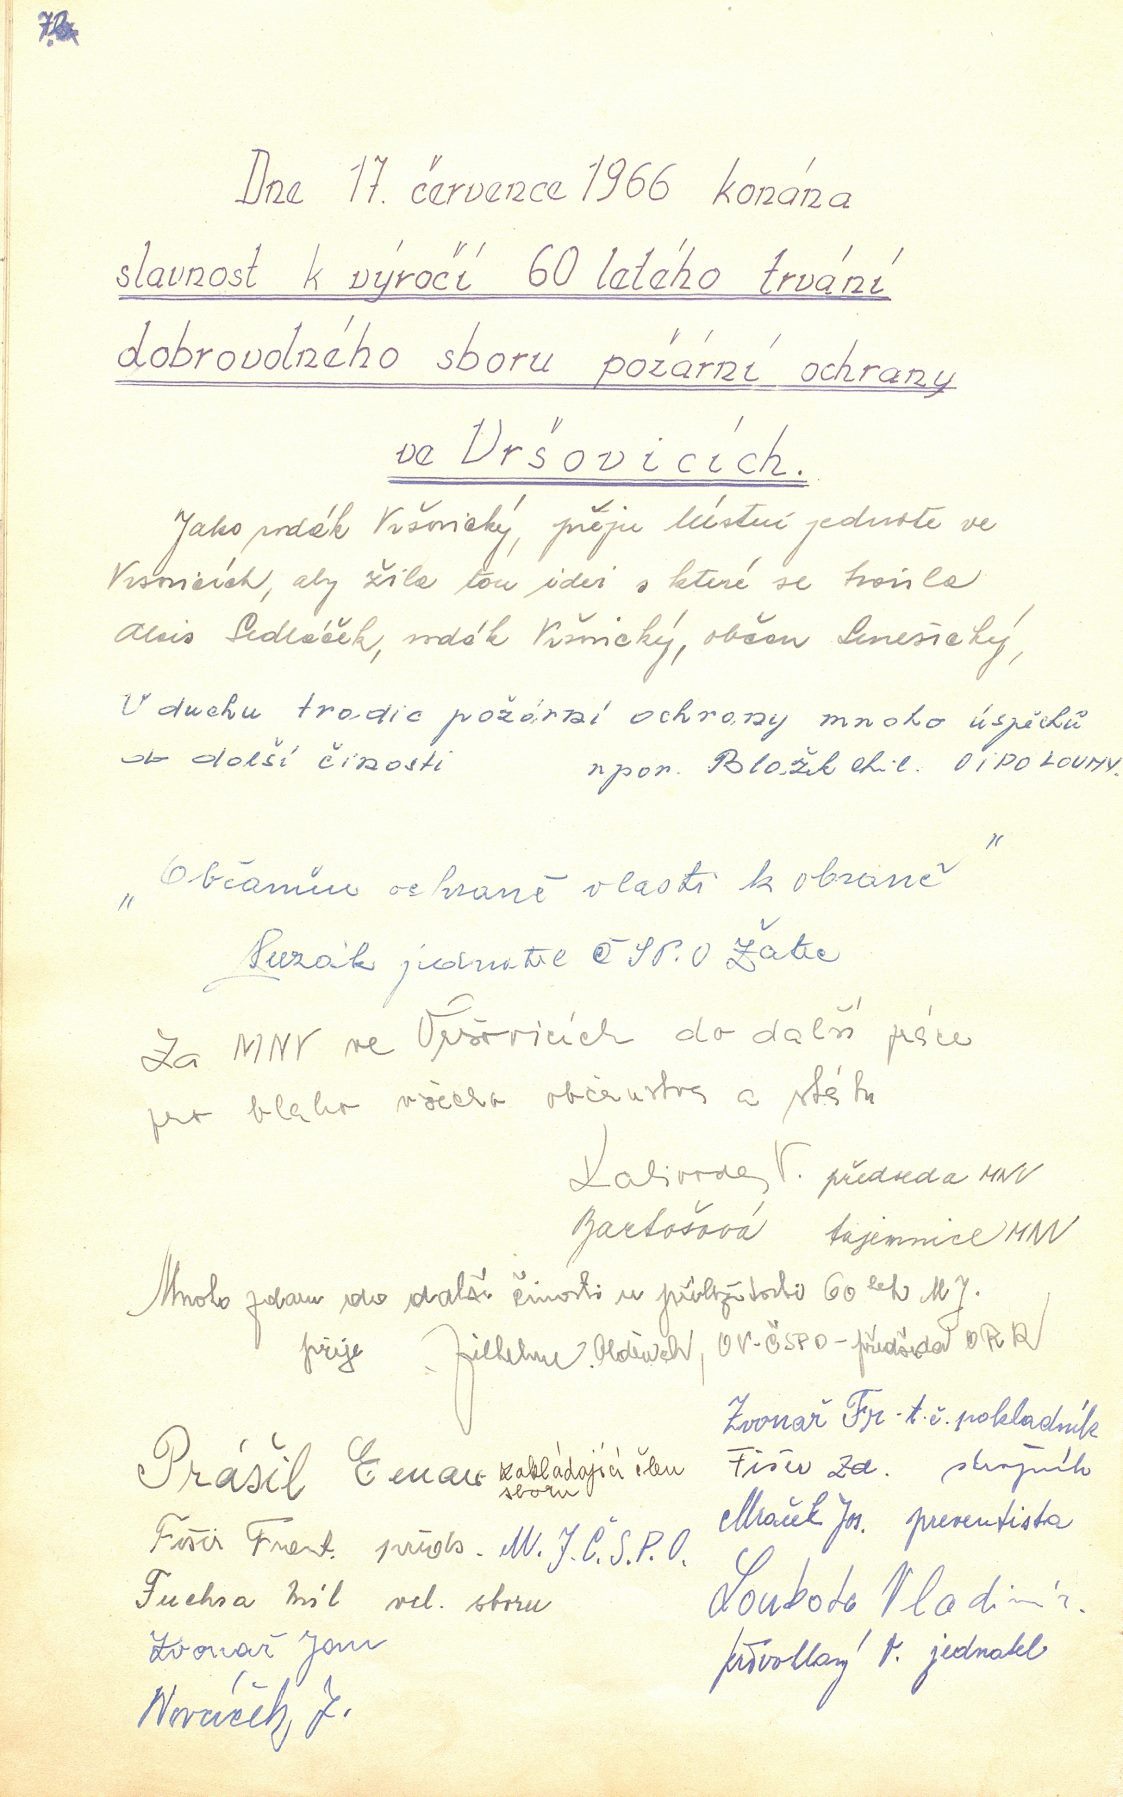 Dne 17. července 1966 konána
slavnost k výročí 60 letého trvání
dobrovolného sboru požární ochrany
ve Vršovicích.
Jako rodák Vršovický, přeju místní jednotě ve
Vršovicích, aby žila tou ideí s které se tvořila
Alois Sedláček, rodák Vršovický, občan Lenešický,
V duchu tradic požární ochrany mnoho úspěchů
do další činosti npor. Blažek OIPO LOUNY.
„Občanům ochraně vlasti k obraně"
jednatel ČSPO Žatec
Za MNV ve Vršovicích do další práce
pro blaho všeho občanstva a státu
Kalivoda V. předseda MNV
Bartošová tajemnice MNV
Mnoho zdaru do další činosti u příležitosti 60 let M J.
přeje Oldřich, OV-ČSPO - předseda
Prášil zakládající člen
sboru
Fišer Frant. předs. M. J. Č. S. P. O.
Fuchsa Mil vel. sboru
Zvonař Jan
Nováček, J.
Zvonař Fr. t. č. pokladník
Fišer Zd. strojník
Mraček Jos. preventista
Loukota Vladimír.
V. jednatel